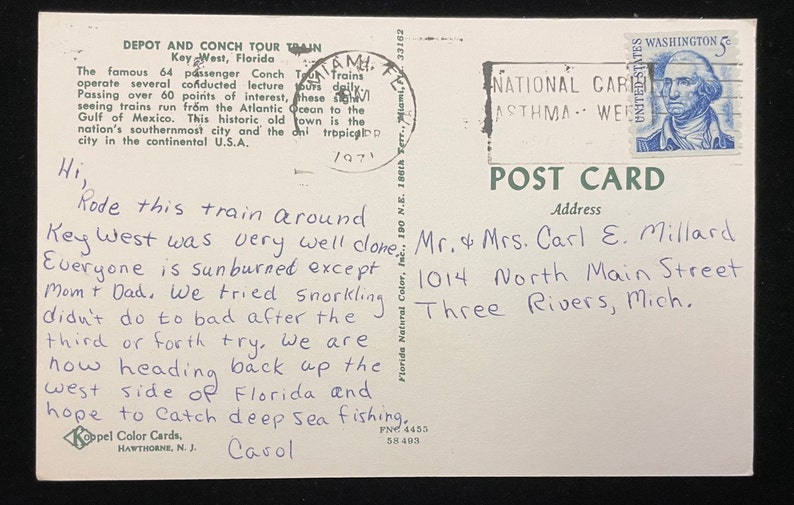 DEPOT AND CONCH TOUR TRAIN
Key West, Florida
The famous 64 passenger Conch Tour Trains
operate several conducted lecture tours daily.
Passing over 60 points of interest, these sight
seeing trains run from the Atlantic Ocean to the
Gulf of Mexico. This historic old town is the
nation's southernmost city and the onl tropical
city in the continental U.S.A.
Hi,
Rode this train around
Key West was very well done.
Everyone is sunburned except
Mom + Dad. We tried snorkling
didn't do to bad after the
third or forth try. We are
now heading back up the
west side of Florida and
hope to catch deep sea fishing.
Carol
Koppel Color Cards,
HAWTHORNE, N. J.
FNC 4455
58493
Florida Natural Color, Inc., 190 N.E. 186th Terr., Miami, Fla. 33162
MIAMI, FL
PM
APR
1971
NATIONAL
ASTHMA WEE
UNITED STATES
WASHINGTON 5c
POST CARD
Address
Mr. & Mrs. Carl E. Millard
1014 North Main Street
Three Rivers, Mich.